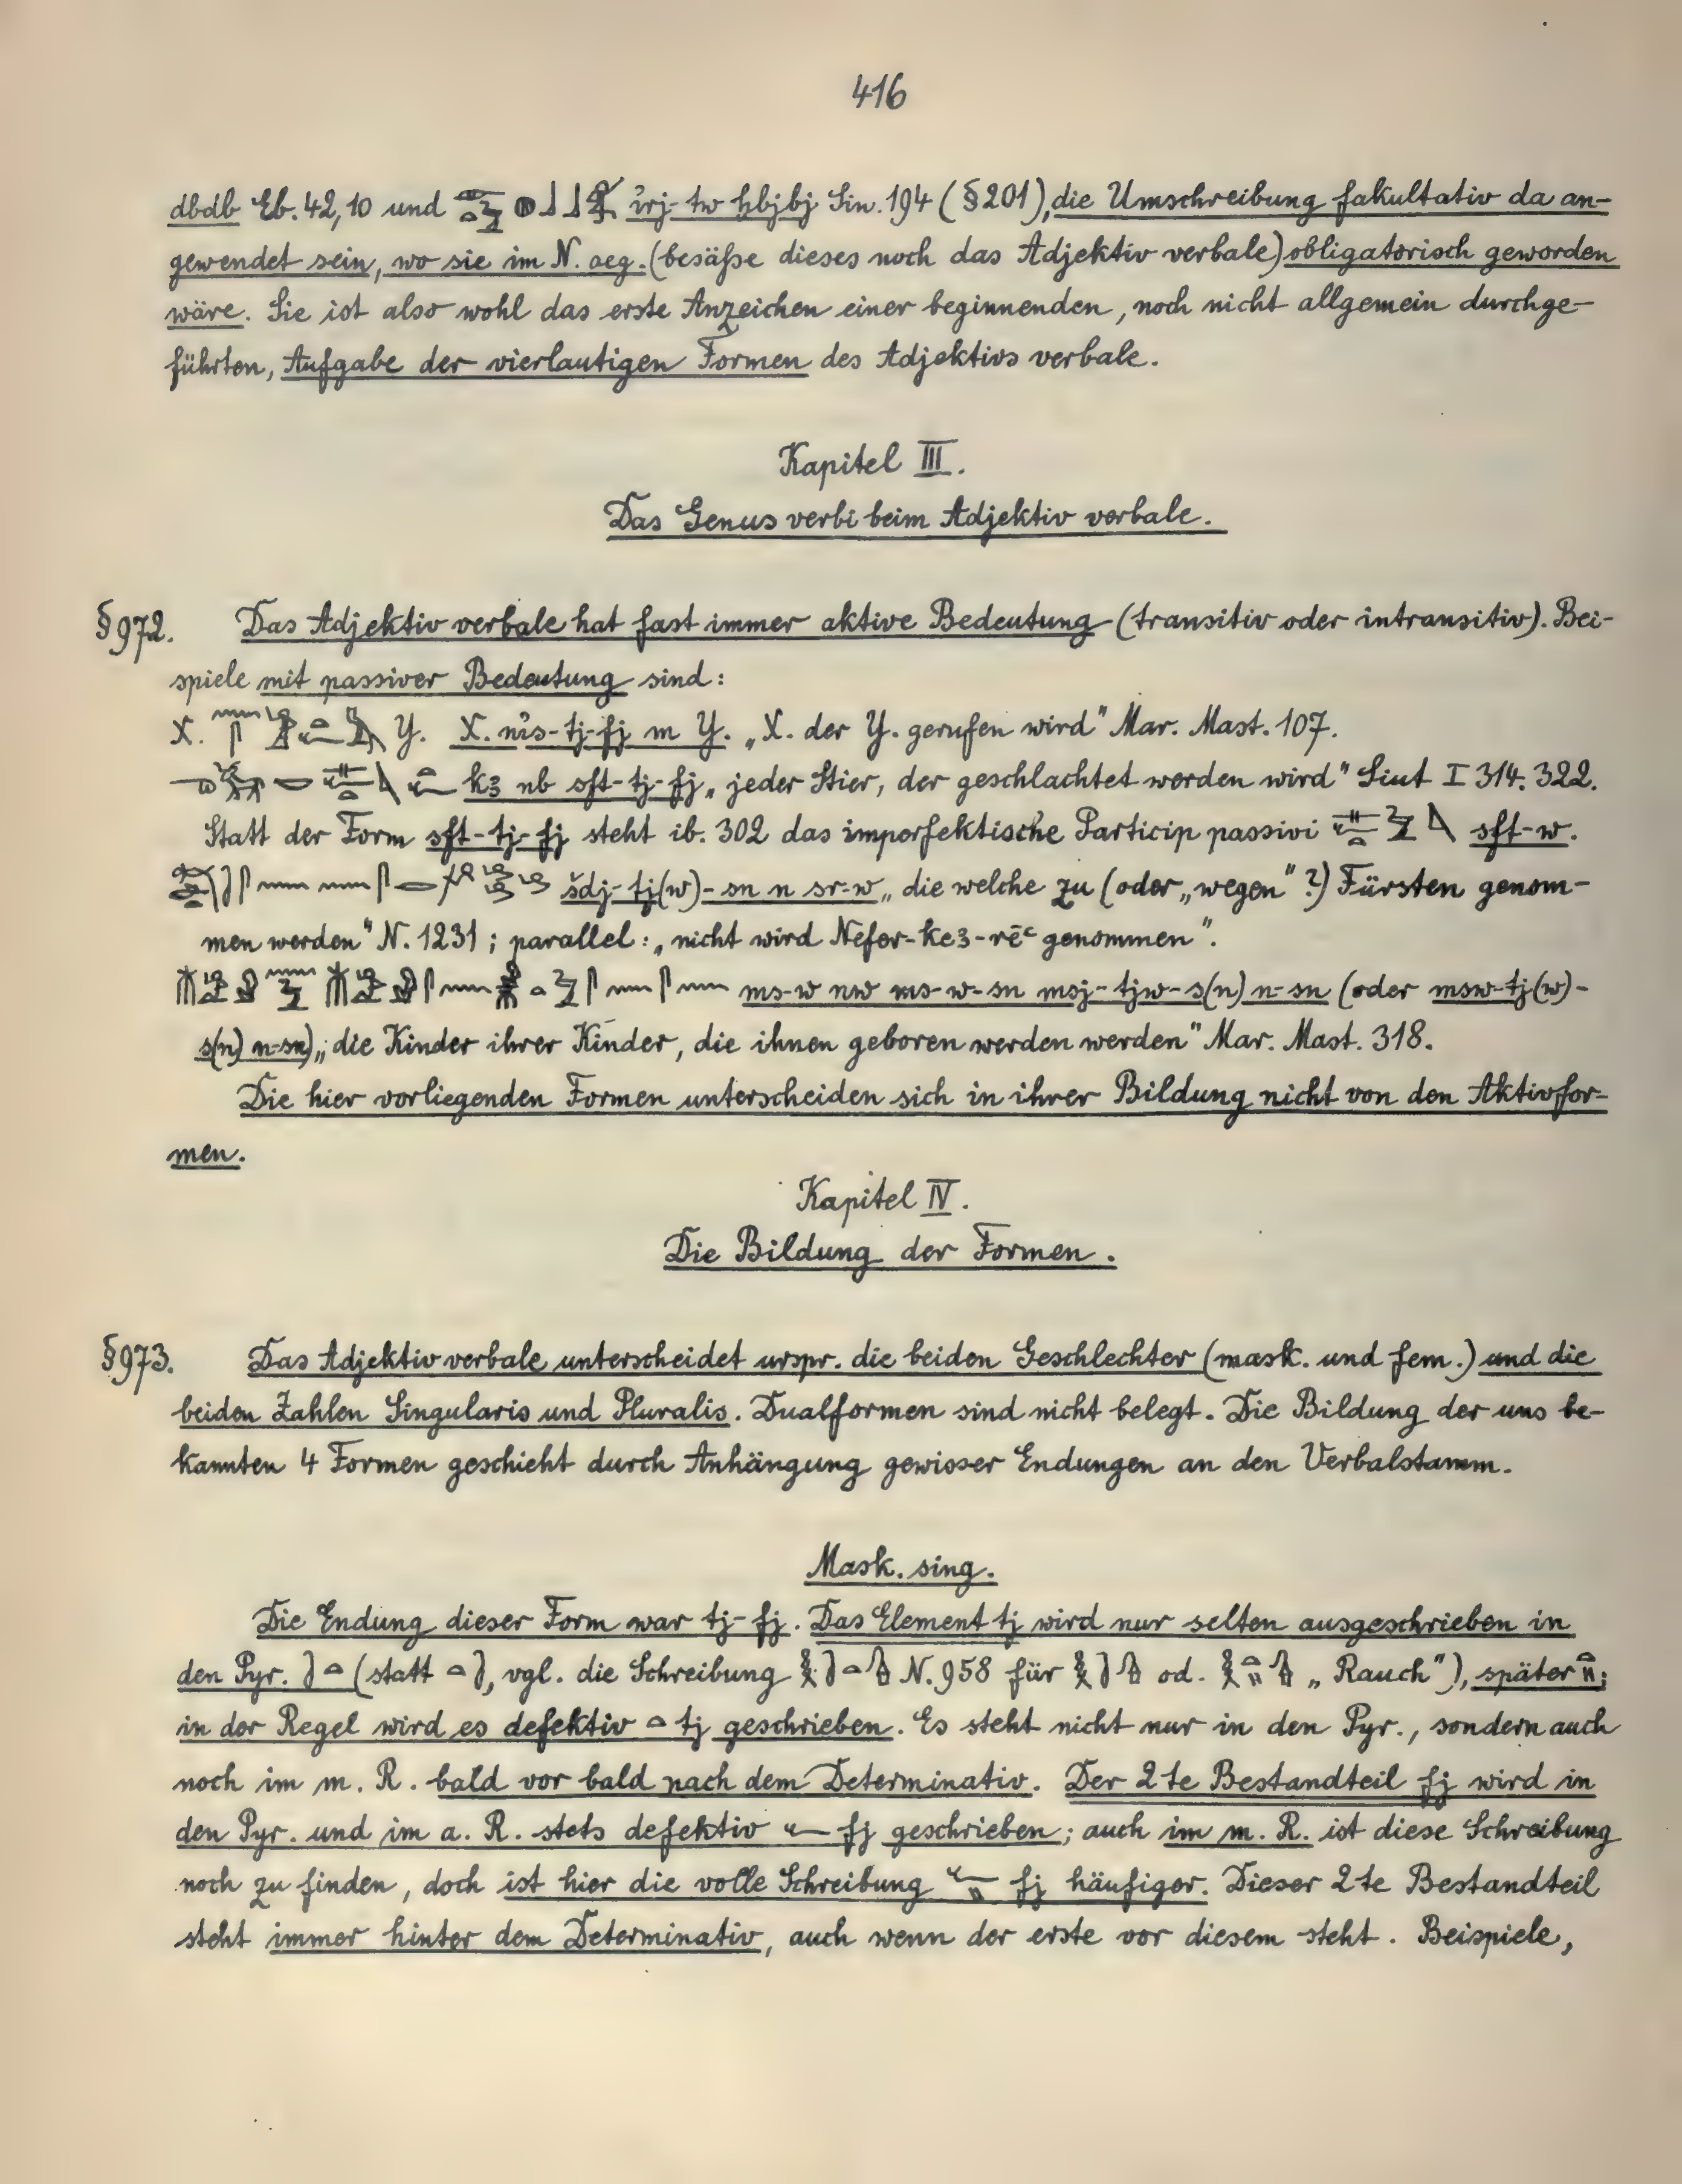 416
dbdb Eb. 42,10 und ỉrj-tw ḫbjbj Sin. 194 (§201), die Umschreibung fakultativ da an-
gewendet sein, wo sie im N. aeg. (besäße dieses noch das Adjektiv verbale) obligatorisch geworden
wäre. Sie ist also wohl das erste Anzeichen einer beginnenden, noch nicht allgemein durchge-
führten, Aufgabe der vierlautigen Formen des Adjektivs verbale.
Kapitel III.
Das Genus verbi beim Adjektiv verbale.
§972. Das Adjektiv verbale hat fast immer aktive Bedeutung (transitiv oder intransitiv). Bei-
spiele mit passiver Bedeutung sind:
X. Y. X. nỉs-tj-fj m Y. „X. der Y. gerufen wird" Mar. Mast. 107.
kꜣ nb sft-tj-fj „jeder Stier, der geschlachtet werden wird" Siut I 314. 322.
Statt der Form sft-tj-fj steht ib. 302 das imperfektische Particip passivi sft-w.
šdj-tj(w)-sn n sr-w „die welche zu (oder „wegen"?) Fürsten genom-
men werden" N. 1231; parallel: „nicht wird Nefer-keꜣ-rēꜥ genommen".
ms-w nw ms-w-sn msj-tjw-s(n) n-sn (oder msw-tj(w)-
s(n) n-sn) „die Kinder ihrer Kinder, die ihnen geboren werden werden" Mar. Mast. 318.
Die hier vorliegenden Formen unterscheiden sich in ihrer Bildung nicht von den Aktivfor-
men.
Kapitel IV.
Die Bildung der Formen.
§973. Das Adjektiv verbale unterscheidet urspr. die beiden Geschlechter (mask. und fem.) und die
beiden Zahlen Singularis und Pluralis. Dualformen sind nicht belegt. Die Bildung der uns be-
kannten 4 Formen geschieht durch Anhängung gewisser Endungen an den Verbalstamm.
Mask. sing.
Die Endung dieser Form war tj-fj. Das Element tj wird nur selten ausgeschrieben in
den Pyr. (statt , vgl. die Schreibung N. 958 für od. „Rauch"), später ;
in der Regel wird es defektiv tj geschrieben. Es steht nicht nur in den Pyr., sondern auch
noch im m. R. bald vor bald nach dem Determinativ. Der 2te Bestandteil fj wird in
den Pyr. und im a. R. stets defektiv fj geschrieben; auch im m. R. ist diese Schreibung
noch zu finden, doch ist hier die volle Schreibung fj häufiger. Dieser 2te Bestandteil
steht immer hinter dem Determinativ, auch wenn der erste vor diesem steht. Beispiele,